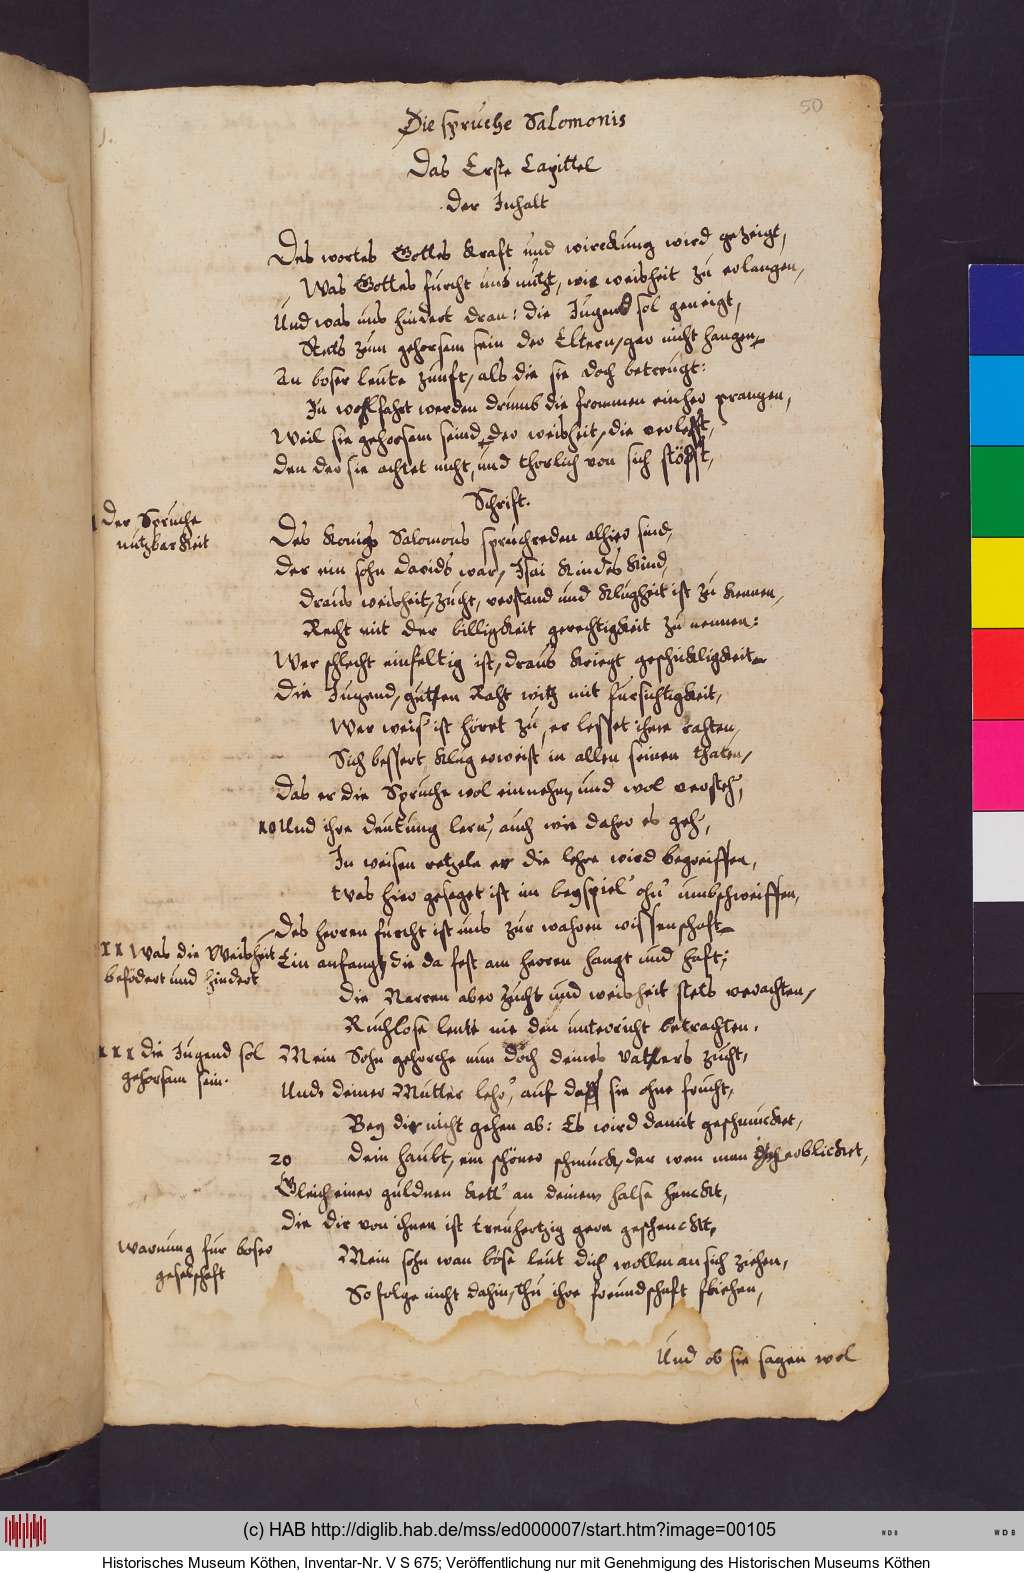 50
Die spruche Salomonis
Das Erste Capittel
Der Inhalt
Des wortes Gottes Kraft und wirckung wird gezeigt,
Was Gottes furcht uns nutzt, wie weisheit zu erlangen,
Und was uns hindert dran: die Jugend sol geneigt,
Stets zum gehorsam sein der Eltern, gar nicht hangen
An boser leute zunft, als die sie doch betreugt:
In wohlfahrt werden drumb die frommen einher prangen,
Weil sie gehorsam seind der weisheit, die verlesst,
den der sie achtet nicht, und thorlich von sich stösst,
Schrift.
I Der Spruche
nutzbarkeit
Des Konigs Salomons spruchreden alhier sind,
Der ein sohn Davids war, Isai Kindes Kind,
draus weisheit, zucht, verstand und Klugheit ist zu kennen,
Recht mit der billigkeit gerechtigkeit zu nennen:
Wer schlecht einfeltig ist, draus kriegt geschickligkeit
Die Jugend, gutten Raht witz mit fursichtigkeit,
Wer weis' ist höret zu, er lesset ihme rahten,
Sich bessert, Klug erweist in allen seinen thaten,
Das er die Spruche wol einnehm, und wol versteh',
10 Und ihre deutung lern', auch wie daher es geh',
In weisen retzeln er die lehre wird begreiffen,
Was hier gesaget ist im beyspiel' ohn' umbschweiffen,
Des herren furcht ist uns zur wahren wissenschaft
II Was die Weisheit
befödert und hindert
Ein anfang, die da fest am herren hangt und haft;
Die Narren aber zucht und weisheit stets verachten,
Ruchlose leute nie den unterricht betrachten.
III Die Jugend sol
gehorsam sein.
Mein Sohn gehorche nun doch deines vatters zucht,
Und deiner Mutter lehr', auf das sie ohne frucht,
Bey dir nicht gehen ab: Es wird damit geschmucket,
20 dein haubt, ein schöner schmuck, der wen man erblicket,
Gleich einer guldnen Kett' an deinem halse henckt,
Die dir von ihnen ist treuhertzig gern geschenckt,
Warnung fur boser
geselschaft
Mein sohn wan böse leut dich wollen an sich ziehen,
So folge nicht dahin, thu ihre freundschaft fliehen,
Und ob sie sagen wol
(c) HAB http://diglib.hab.de/mss/ed000007/start.htm?image=00105
WDB
WDB
Historisches Museum Köthen, Inventar-Nr. V S 675; Veröffentlichung nur mit Genehmigung des Historischen Museums Köthen